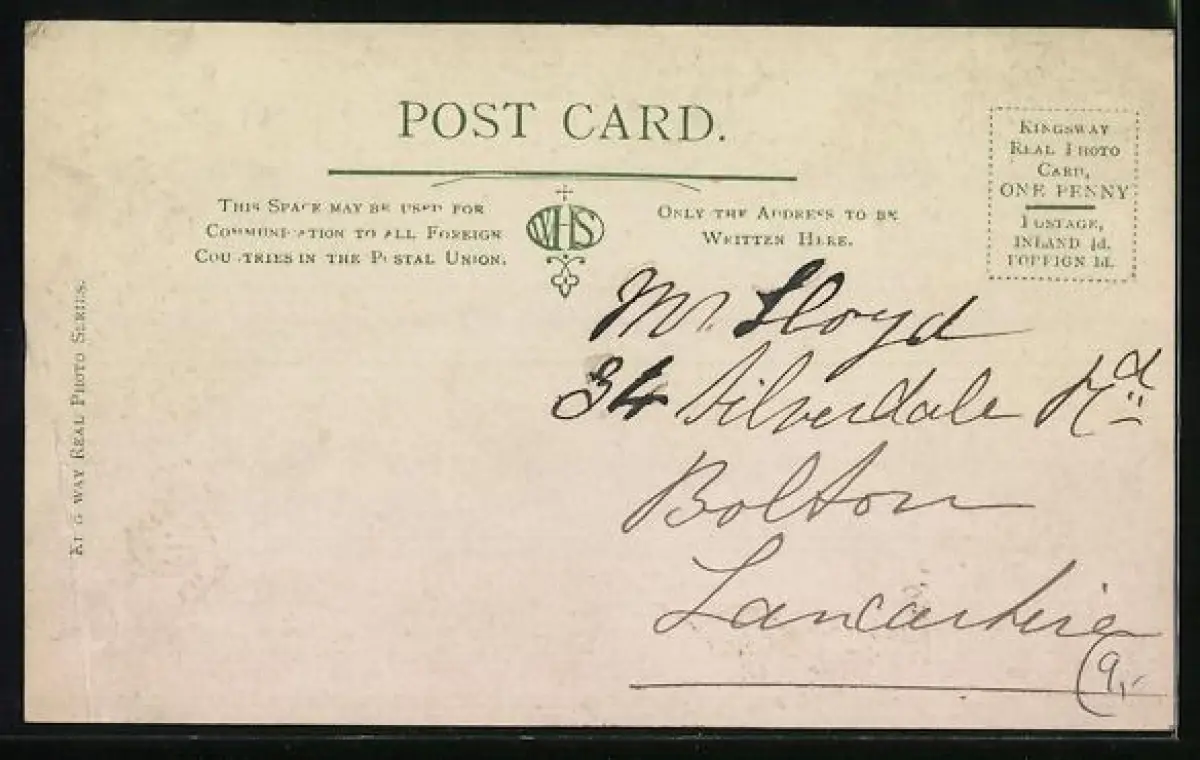 POST CARD.
THIS SPACE MAY BE USED FOR
COMMUNICATION TO ALL FOREIGN
COUNTRIES IN THE POSTAL UNION.
WHS
ONLY THE ADDRESS TO BE
WRITTEN HERE.
KINGSWAY
REAL PHOTO
CARD,
ONE PENNY
POSTAGE,
INLAND ½d.
FOREIGN 1d.
KINGSWAY REAL PHOTO SERIES.
Mr. Lloyd
34 Silverdale Rd
Bolton
Lancashire
(9,-